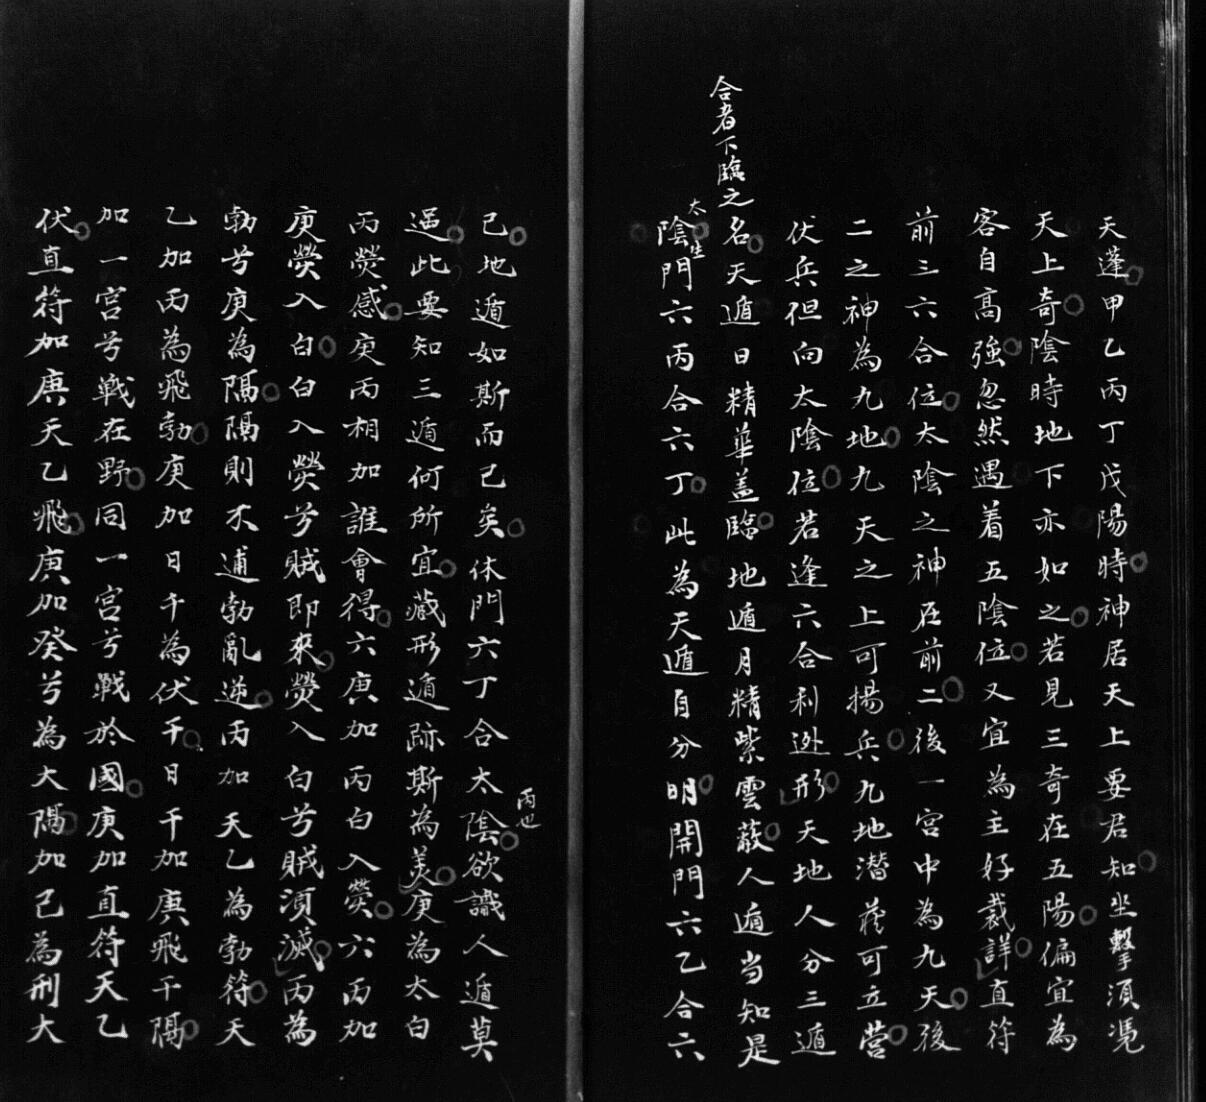 天蓬甲乙丙丁戊陽時神居天上要君知坐擊湏凴
天上奇陰時地下亦如之若見三奇在五陽偏宜為
客自高強忽然遇着五陰位又宜為主好裁詳直符
前三六合位太陰之神在前二後一宮中為九天後
二之神為九地九天之上可揚兵九地潛藏可立營
伏兵但向太陰位若逢六合利逃形天地人分三遁
合者下臨之
名天遁日精華盖臨地遁月精紫雲蔽人遁当知是
太
陰生門六丙合六丁此為天遁自分明開門六乙合六
己地遁如斯而已矣休門六丁合太陰欲識人遁莫
丙也
過此要知三遁何所宜藏形遁跡斯為美庚為太白
丙熒感庚丙相加誰會得六庚加丙白入熒六丙加
庚熒入白白入熒兮賊即來熒入白兮賊湏滅丙為
勃兮庚為隔隔則不逋勃亂逆丙加天乙為勃符天
乙加丙為飛勃庚加日干為伏干日干加庚飛干隔
加一宮兮戰在野同一宮兮戰於國庚加直符天乙
伏直符加庚天乙飛庚加癸兮為大隔加己為刑大